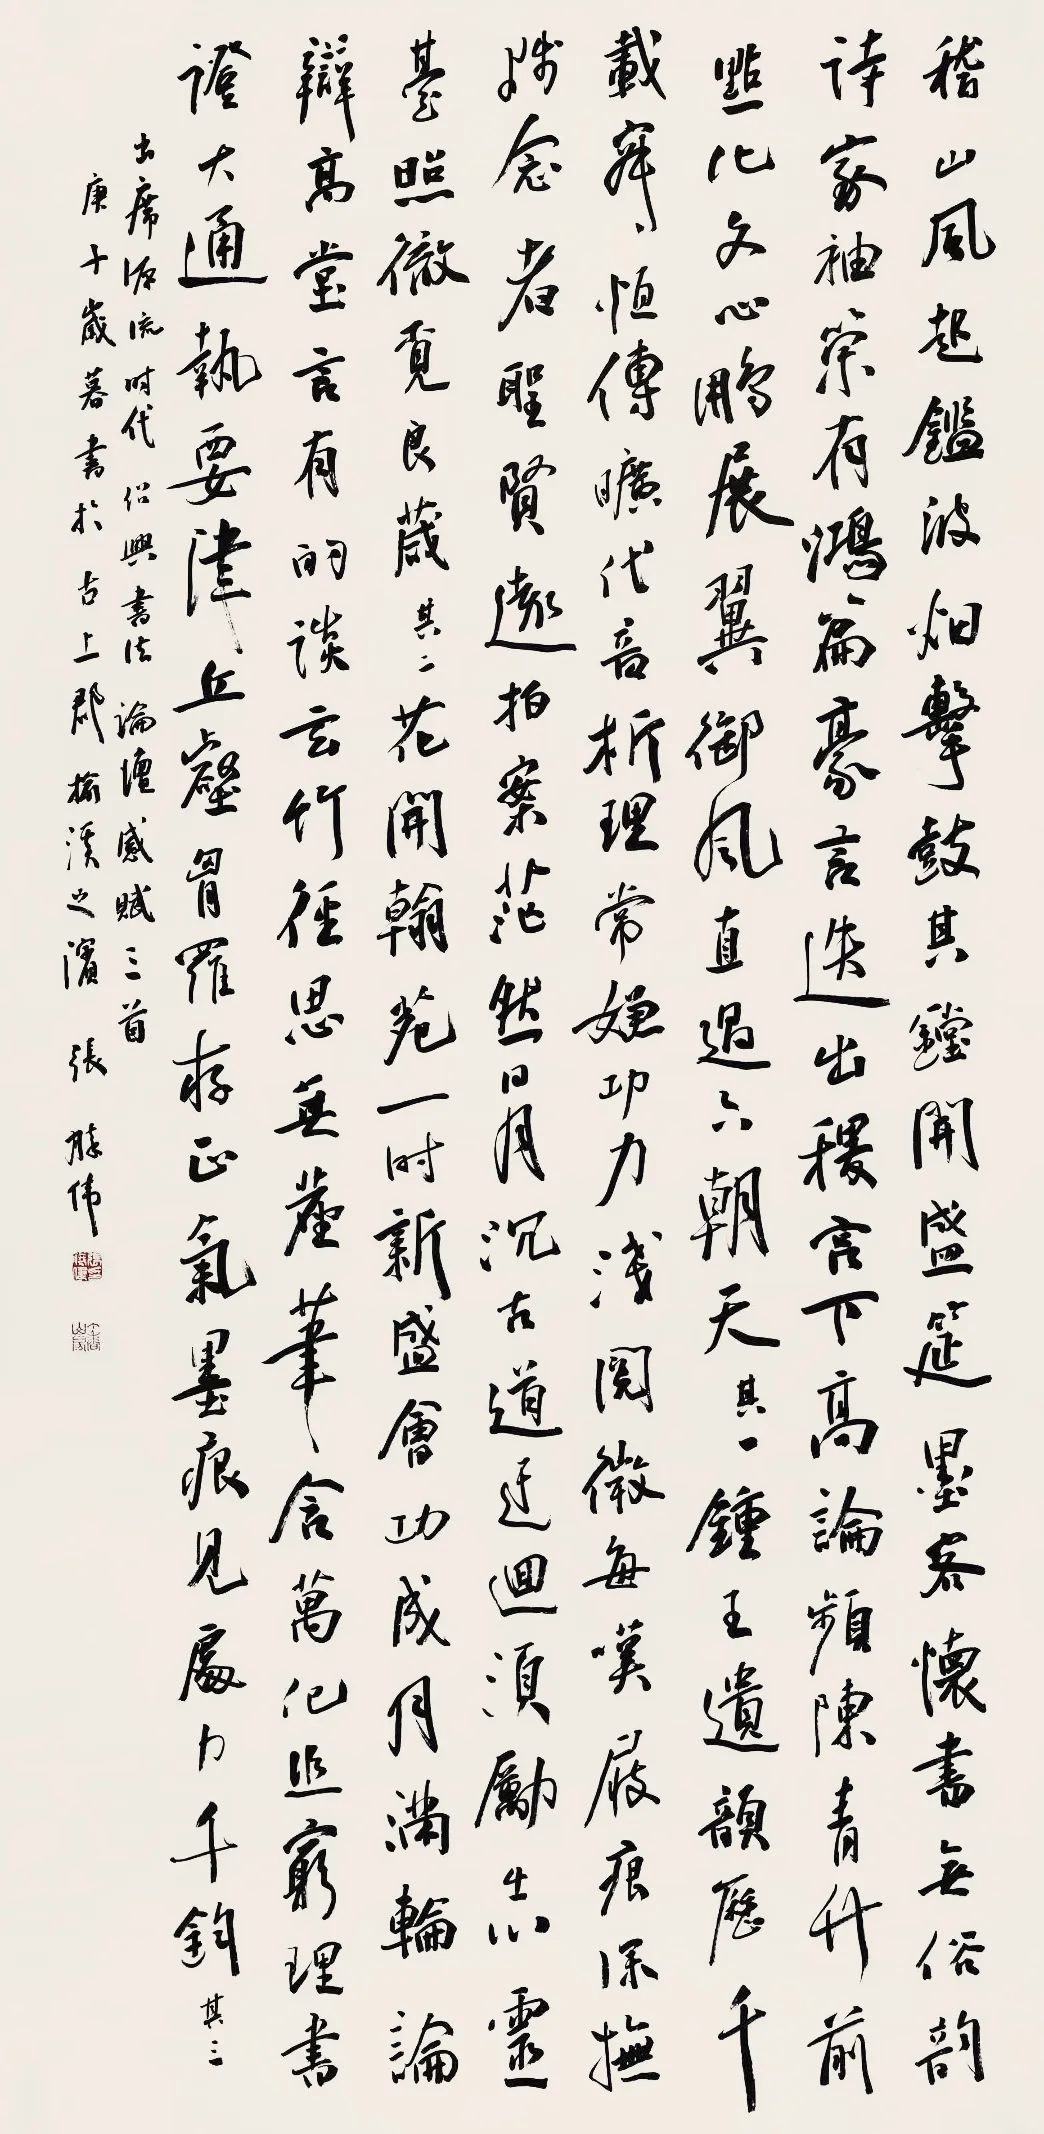 稽山風起鑑波烟擊鼓其鏜開盛筵墨客懷書無俗韵
詩家袖柬有鴻篇豪言迭出稷言下高論頻陳青升前
點化文心鵬展翼御風直過六朝天其一鍾王遺韻歷千
載寧、恒傳曠代音析理常嫌功力淺闡微每嘆屐痕深撫
踐念者聖賢邈拍案茫然日月沉古道迂迴須勵出心靈
臺照徹覓良蔵其二花開翰苑一时新盛會功成月滿輪論
辯高堂言有的談玄竹徑思無塵筆含萬化迟窮理書
證大通執要津丘壑胷羅存正氣墨痕見處力千鈞其三
出席源流时代绍興書法論壇感赋三首
庚子歲暮書於古上郡榆溪之濱 張勝伟